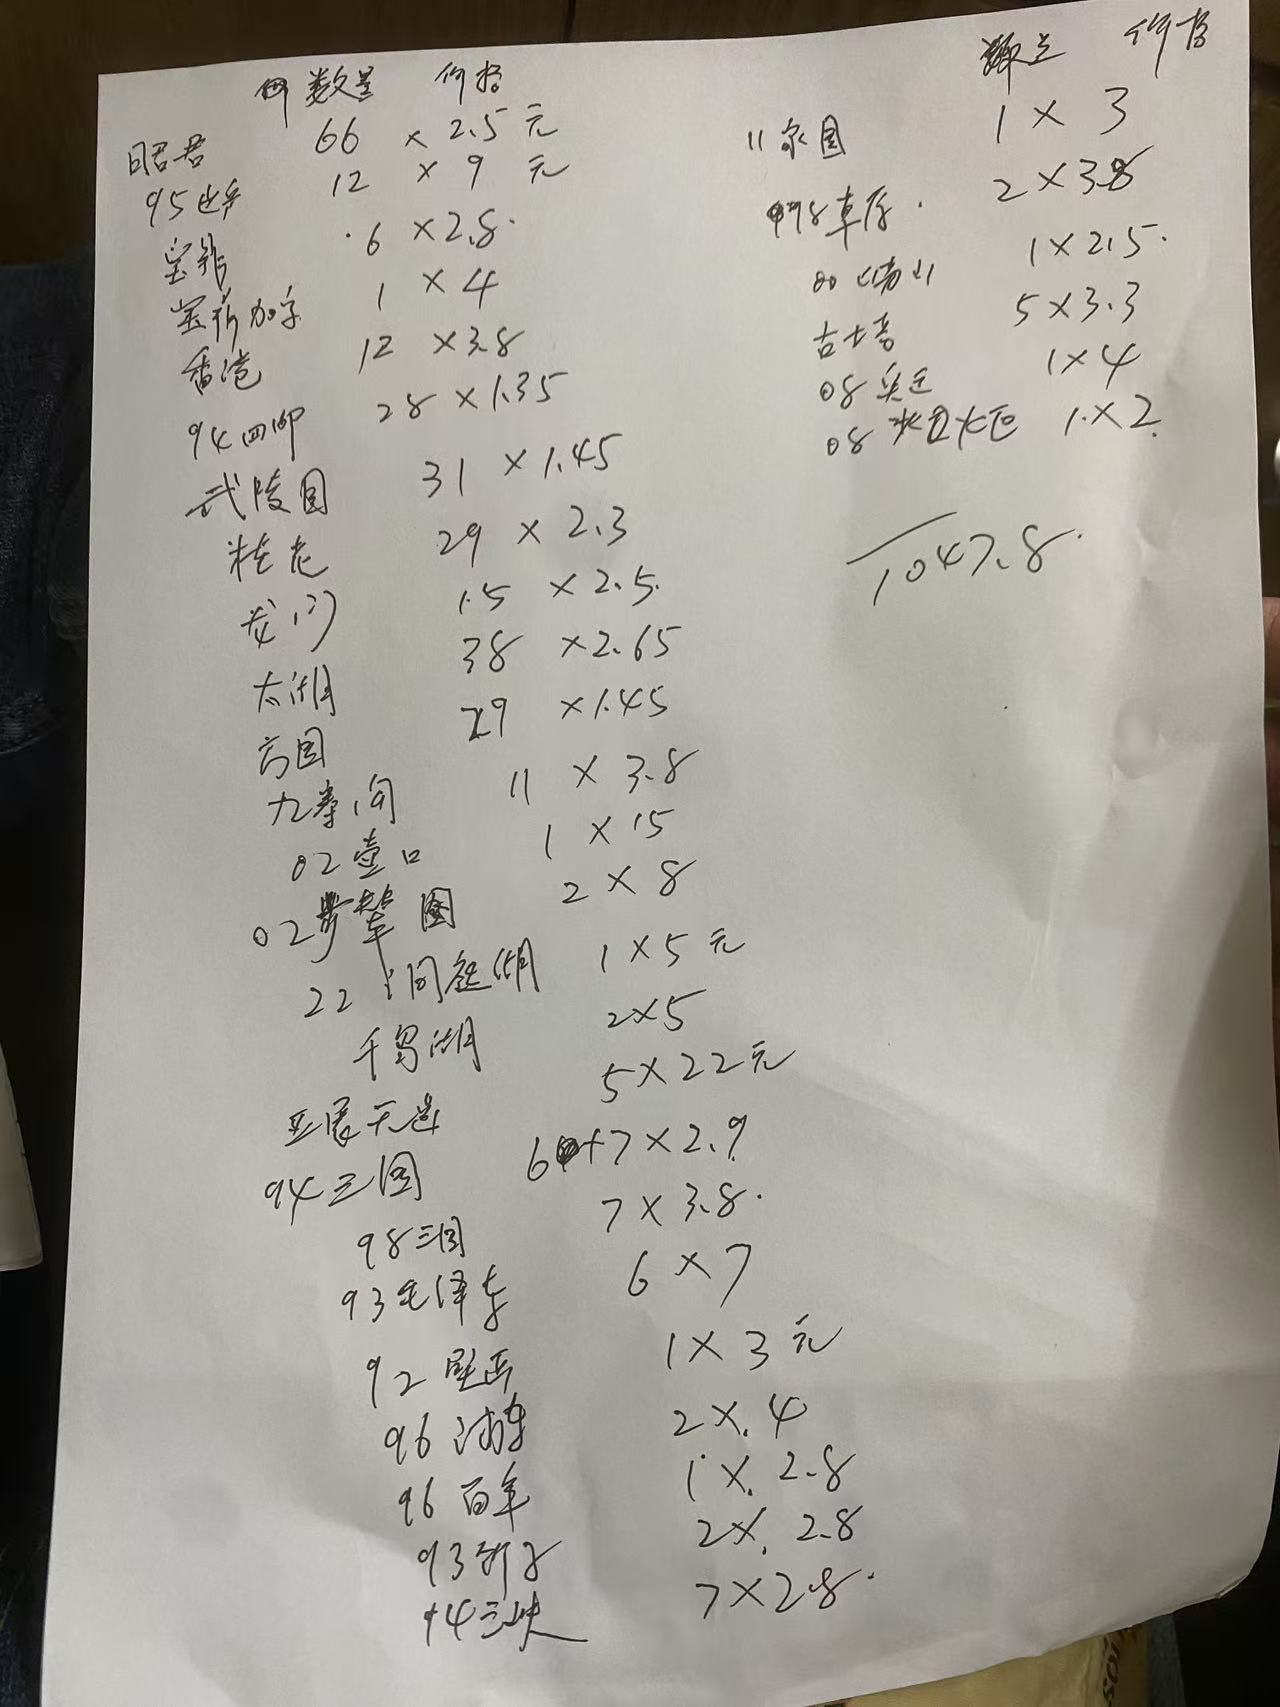 数量 价格
昭君 66 × 2.5元
95 12 × 9 元
宝 6 × 2.8
宝 加字 1 × 4
香港 12 × 3.8
94四 28 × 1.35
武陵园 31 × 1.45
桂花 29 × 2.3
龙门 15 × 2.5
太湖 38 × 2.65
古园 29 × 1.45
九寨沟 11 × 3.8
02壶口 1 × 15
02步辇图 2 × 8
22洞庭湖 1 × 5元
千岛湖 2×5
无 5×22元
94三国 6+7×2.9
98三国 7×3.8
93毛泽东 6×7
92 1×3元
96 2×4
96百年 1×2.8
93 2×2.8
94三峡 7×2.8
价格
11 国 1×3
98 2×3.8
00 1×2.5
古 5×3.3
08奥运 1×4
08 1×2
1047.8